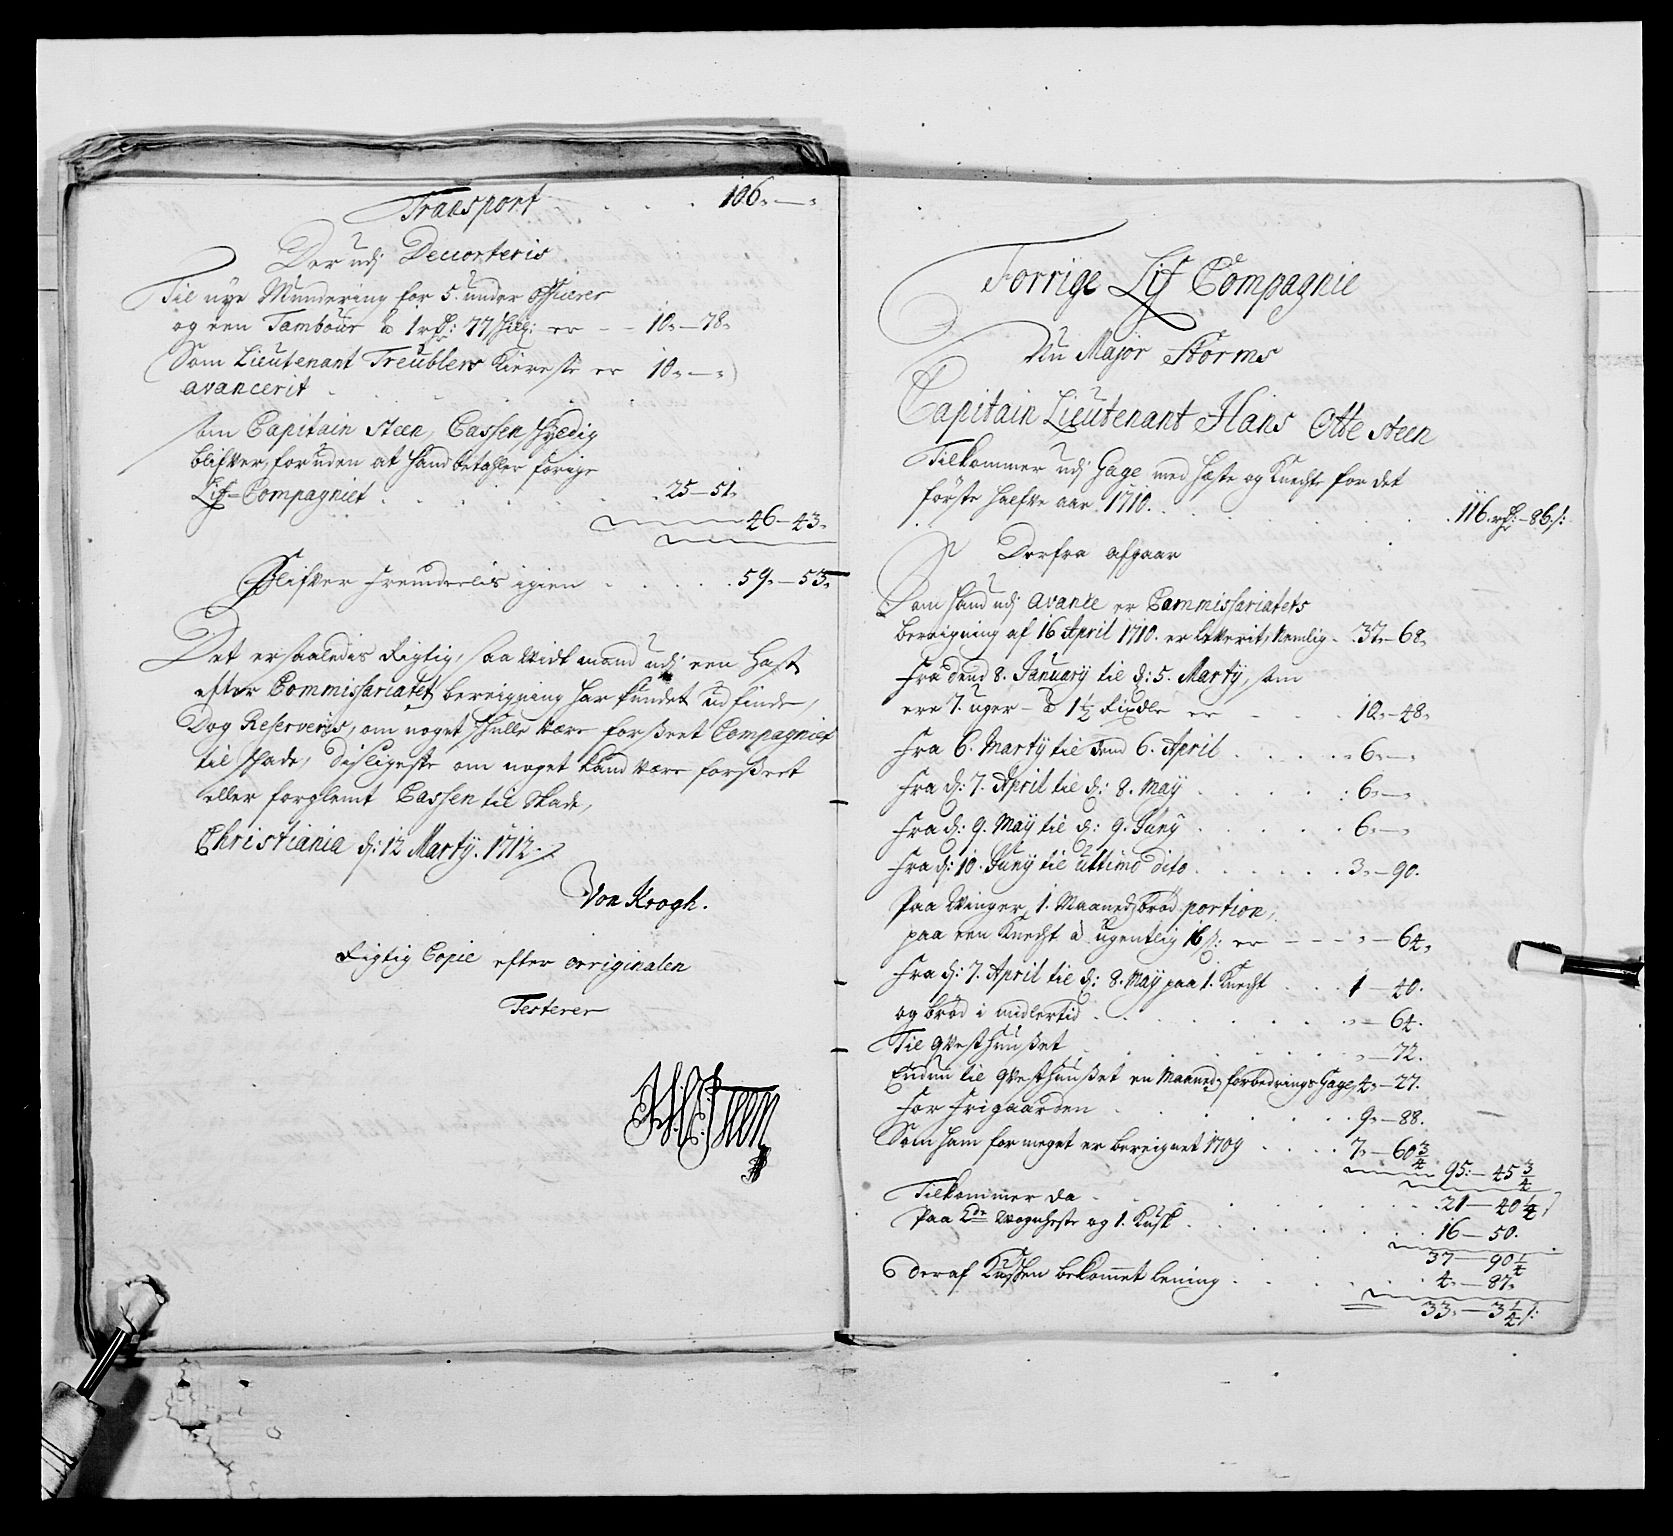 Transport . . . 106„—„
Der udj Decorteris
Til nye Mundering for 5. under officerer
og een Tambour à 1 rdr: 77 skil: er — 10„—78„
Som Lieutenant Treublers Kiereste er 10„—„)
avancerit . . . . .
som Capitain Steen, Cassen skyldig
blifver, foruden at hand betahler forige
Lif-Compagniet . . . . . 25—51„
46—43„
Blifver fremdeelis igien . . . . . 59„—53„
Det er saaledis Rigtig, saa vidt mand udj een Hast
efter Commissariatets bereigning har kundet udfinde,
Dog Reserveris, om noget skulle være forseet Compagniet
til skade, disligeste om noget kand være forseet
eller forglemt Cassen til skade,
Christiania d: 12 Marty. 1712 ./.
Von Krogh.
Rigtig Copie efter orriginalen
Testerer
HOSteen
Forrige Lif Compagnie
Nu Major Storms
Capitain Lieutenant Hans Otte Steen
Tilkommer udj Gage med heste og Knecht for det
første halfve aar 1710. . . . . 116. rdr:—86./:
Derfra afgaar
Som hand udj avance er Commissariatets
bereigning af 16 April 1710. er leverit, Nemlig . 37„—68„
fra dend 8. January til d: 5. Marty, som
ere 7. uger — à 1½ Rixdlr er — . . 10„—48„
fra 6. Marty til dend 6. April . . . . . 6„—„
fra d: 7. April til d: 8. May . . . . : 6„—„
fra d: 9. May til d: 9. Juny . . . . . 6„—„
fra d: 10. Juny til ultimo dito . . . . . 3„—90.
Paa Vinger, 1. Maaneds brød portion,
paa een Knecht à ugentlig 16 s: er — — — „—64„
fra d: 7. April til d: 8. May paa 1. Knecht . . . 1—40.
og brød i midlertid . . . . . „—64.
Til qvesthuuset . . . . . „—72.
Endnu til qvesthuuset en Maaneds forbedrings Gage, 4„—27.
for frigaarden . . . . . 9„—88.
Som ham for meget er bereignet 1709 . . . . 7„—60¾
95:—45¾
Tilkommer da . . . . . 21—40¼
Paa 2de Vognheste og 1. Kusk . . . . . 16—50.
37—90¼
deraf Kusken bekommet lening . . . . . 4„—87„
33„—3¼./: